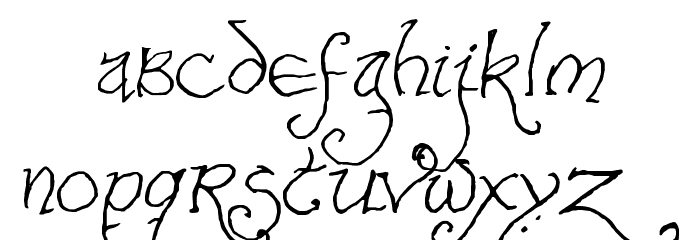 aBcdefghijklm
nopqRstuvwxyz